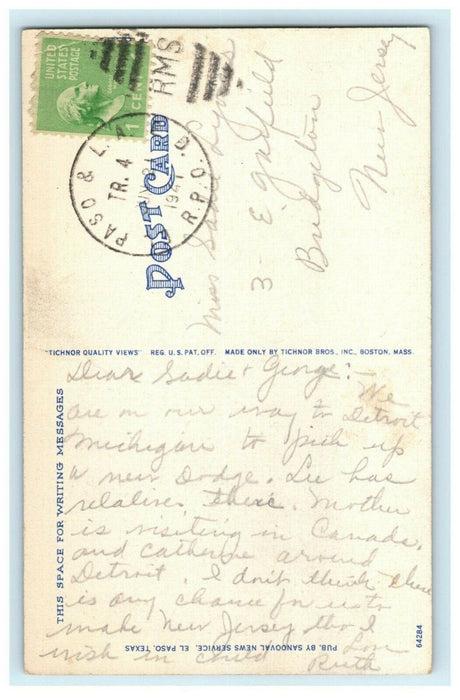 UNITED
STATES
POSTAGE
1 CENT
RMS
PASO & L. A.
TR. 4
194
R.P.O.
POST CARD
Miss Sadie
3 - E
Bridgeton
New Jersey
"TICHNOR QUALITY VIEWS" REG. U.S. PAT. OFF. MADE ONLY BY TICHNOR BROS., INC., BOSTON, MASS.
THIS SPACE FOR WRITING MESSAGES
Dear Sadie + George:- We
are on our way to Detroit
Michigan to pick up
a new Dodge. Lee has
relatives there. Mother
is visiting in Canada,
and Catherine around
Detroit. I don't think there
is any chance for us to
make New Jersey tho I
wish I could
Love
Ruth
PUB. BY SANDOVAL NEWS SERVICE, EL PASO, TEXAS
64284